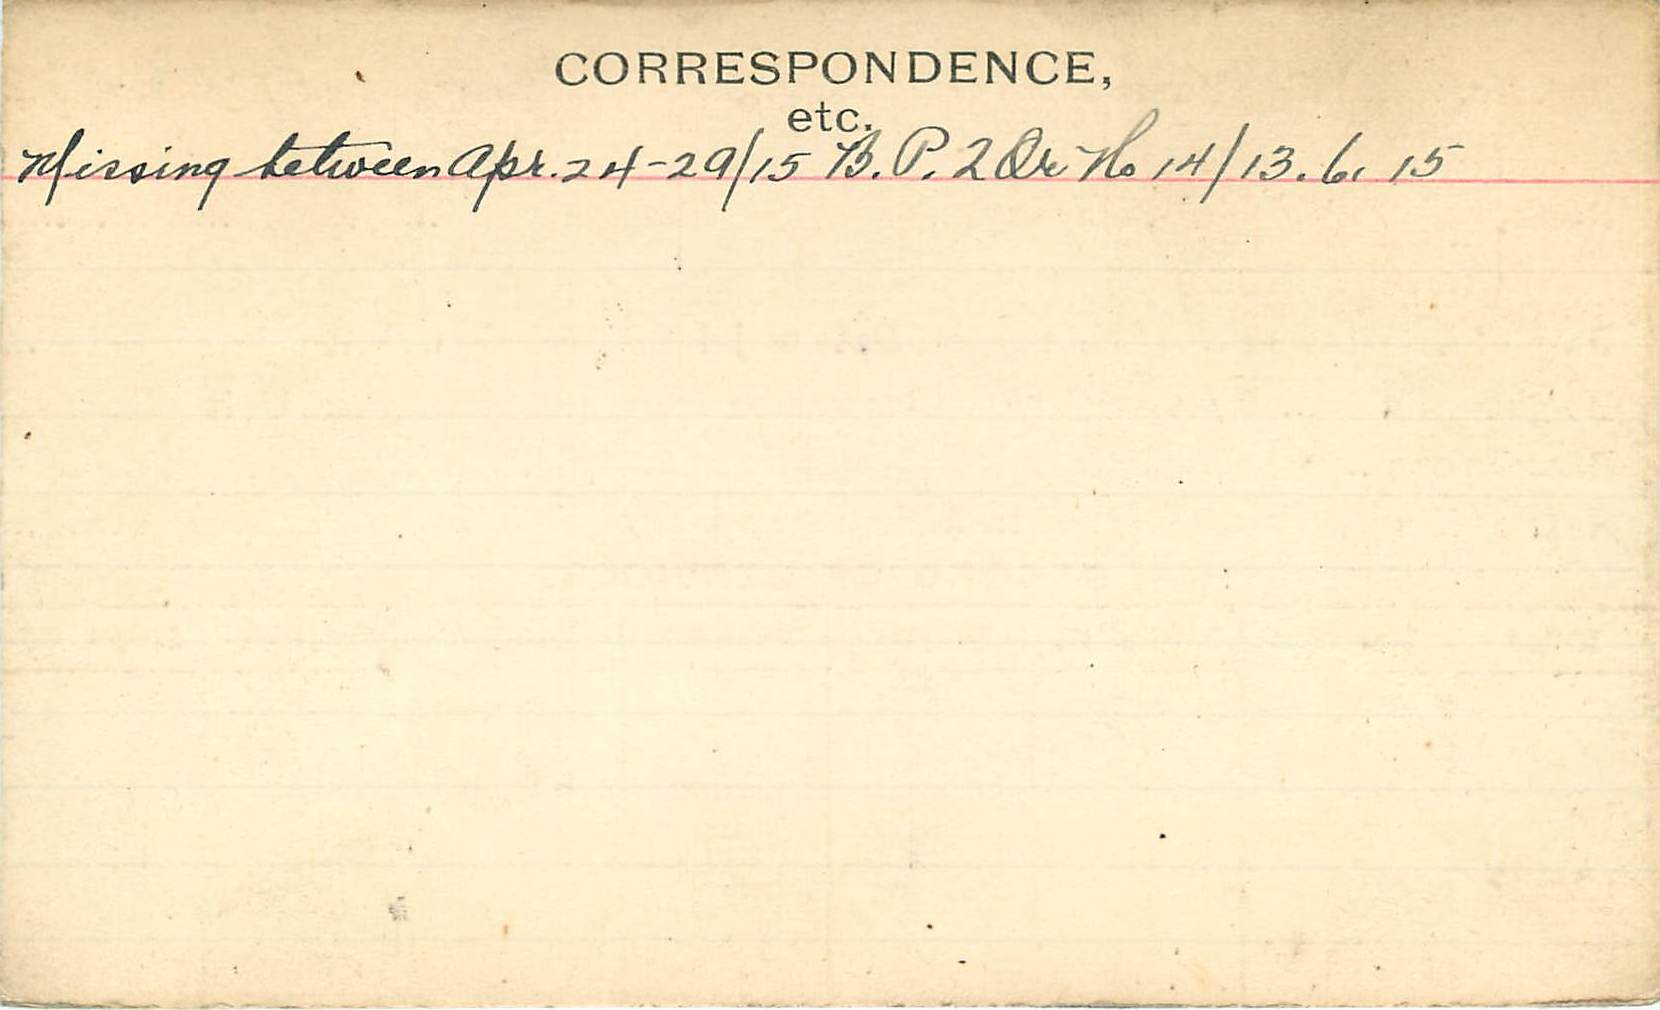 CORRESPONDENCE,
etc.
Missing between Apr. 24-29/15 B. P. 2 Or No 14/13. 6. 15